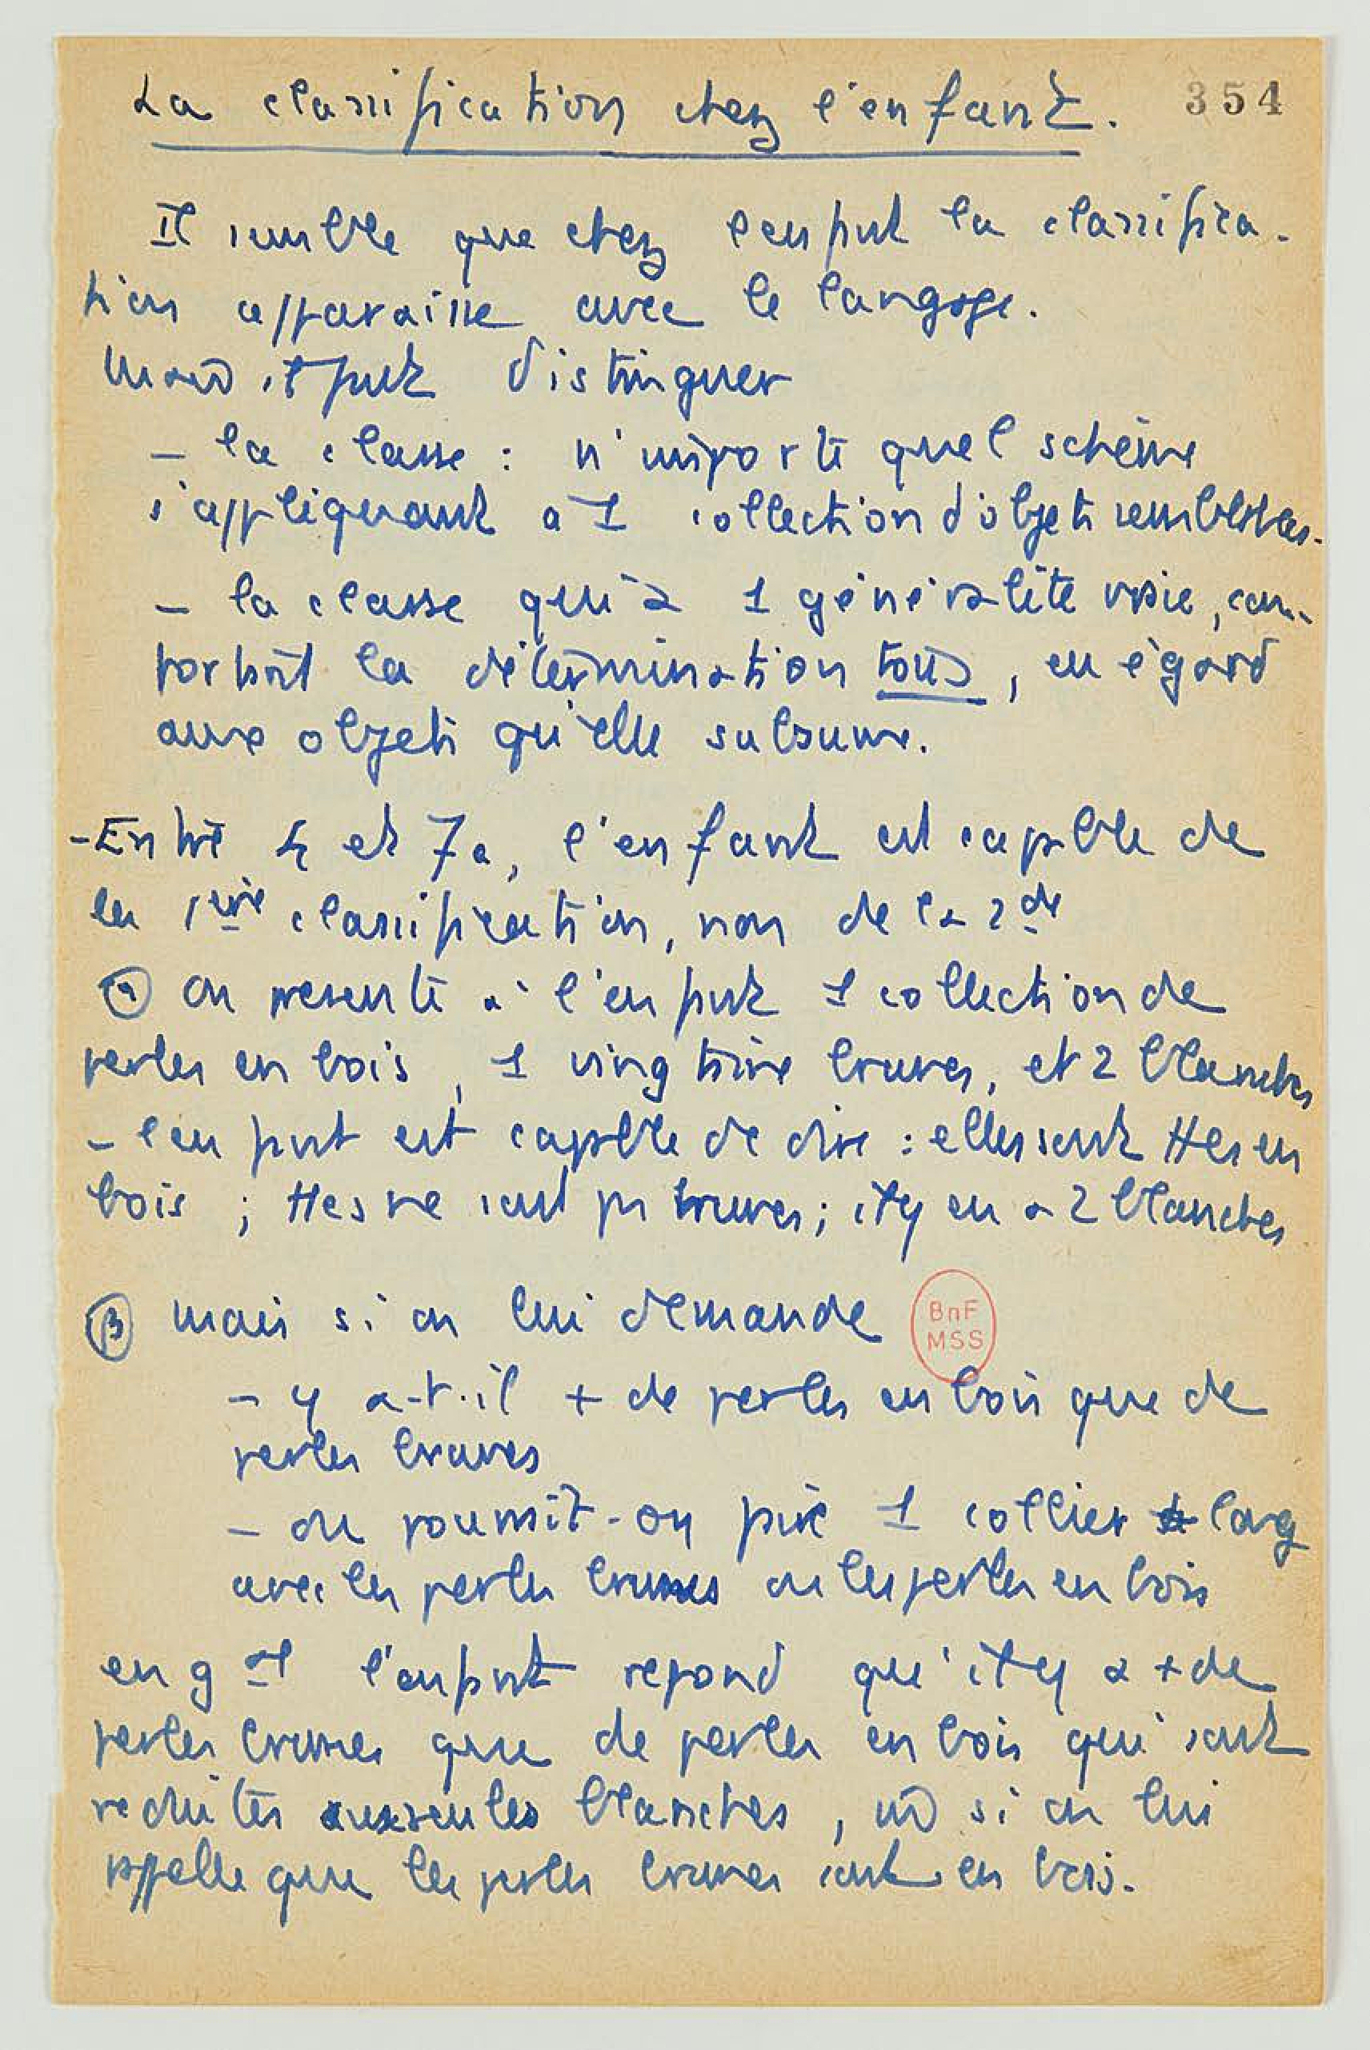 La classification chez l'enfant.
354
Il semble que chez l'enfant la classifica-
tion apparaisse avec le langage.
Mais il faut distinguer
- la classe : n'importe quel schème
s'appliquant a 1 collection d'objets semblables.
- la classe qui a 1 généralité vraie, com-
portant la détermination tous, eu égard
aux objets qu'elle subsume.
- Entre 4 et 7 a, l'enfant est capable de
la 1ère classification, non de la 2de
α on presente à l'enfant 1 collection de
perles en bois, 1 vingtaine brunes, et 2 blanches
- l'enfant est capable de dire : elles sont ttes en
bois ; ttes ne sont pas brunes ; il y en a 2 blanches
β mais si on lui demande
BnF
MSS
- y a-t-il + de perles en bois que de
perles brunes
- ou pourrait-on faire 1 collier + long
avec les perles brunes ou les perles en bois
en gal l'enfant repond qu'il y a + de
perles brunes que de perles en bois qui sont
reduites aux seules blanches, m̂ si on lui
rappelle que les perles brunes sont en bois.